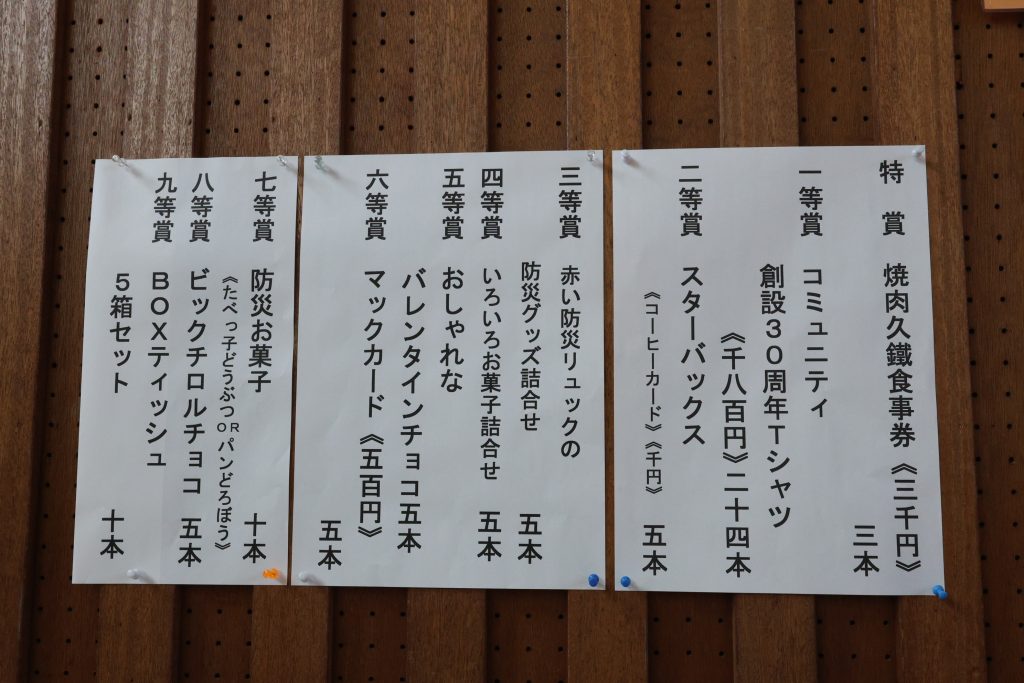 特　賞　焼肉久鐵食事券《三千円》
三本
一等賞　コミュニティ
創設３０周年Ｔシャツ
《千八百円》二十四本
二等賞　スターバックス
《コーヒーカード》《千円》　五本
三等賞　赤い防災リュックの
防災グッズ詰合せ　五本
四等賞　いろいろお菓子詰合せ　五本
五等賞　おしゃれな
バレンタインチョコ五本
六等賞　マックカード《五百円》
五本
七等賞　防災お菓子　十本
《たべっ子どうぶつＯＲパンどろぼう》
八等賞　ビックチロルチョコ　五本
九等賞　ＢＯＸティッシュ
５箱セット　十本